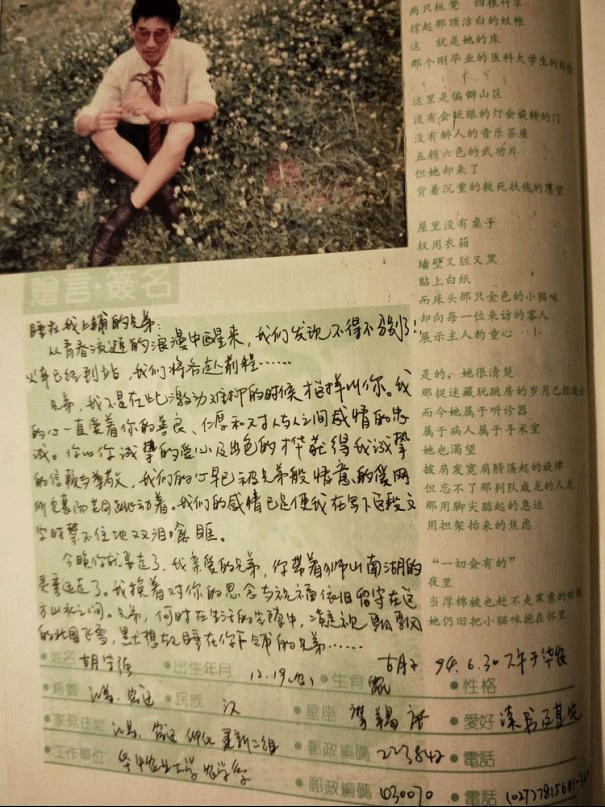 两只板凳 四根竹竿
撑起那顶洁白的蚊帐
这 就是她的床
那个刚毕业的医科大学生的
这里是偏僻山区
没有会眨眼的灯会旋转的门
没有醉人的音乐茶座
五颜六色的武功片
但她却来了
背着沉重的救死扶伤的愿望
屋里没有桌子
权用衣箱
墙壁又脏又黑
贴上白纸
而床头那只金色的小猫咪
却向每一位来访的客人
展示主人的童心
是的，她很清楚
那捉迷藏玩跳房的岁月已经
而今她属于听诊器
属于病人属于手术室
她也渴望
披肩发宽肩膀荡起的旋律
但忘不了那列队成龙的人龙
那用脚尖踮起的急迫
用担架抬来的焦虑
“一切会有的”
夜里
当厚棉被也赶不走寒意的时候
她仍旧把小猫咪抱在怀里
贈言·簽名
睡在我上铺的兄弟：
从青春流逝的浪漫中醒来，我们发现不得不分别了！
火车已经到站，我们将各赴前程……
兄弟，我不是在此激动难抑的时候才这样叫你。我
的心一直爱着你的善良、仁厚和对人与人之间感情的忠
诚。你以你诚挚的爱心及出色的 获得我诚挚
的信赖与尊敬，我们的心早已被兄弟般情意的
所 而 动着。我们的感情已是使我在写下这段文
字时禁不住地双泪 眶。
今晚你就要走了，我亲爱的兄弟，你带着狮山南湖的
灵 远走了。我揣着对你的思念与祝福依旧留守在这
方山水之间。兄弟，何时在生活的 中，
的北国飞雪，想想睡在你下铺的兄弟……
94.6.30 于华农
姓名 胡 出生年月 12.19 生肖 性格
籍貫 民族 汉 星座 愛好
家庭住址 二组 郵政編碼 223842 電話
工作單位 华中农业大学农学 郵政編碼 030070 電話 (027)7815681